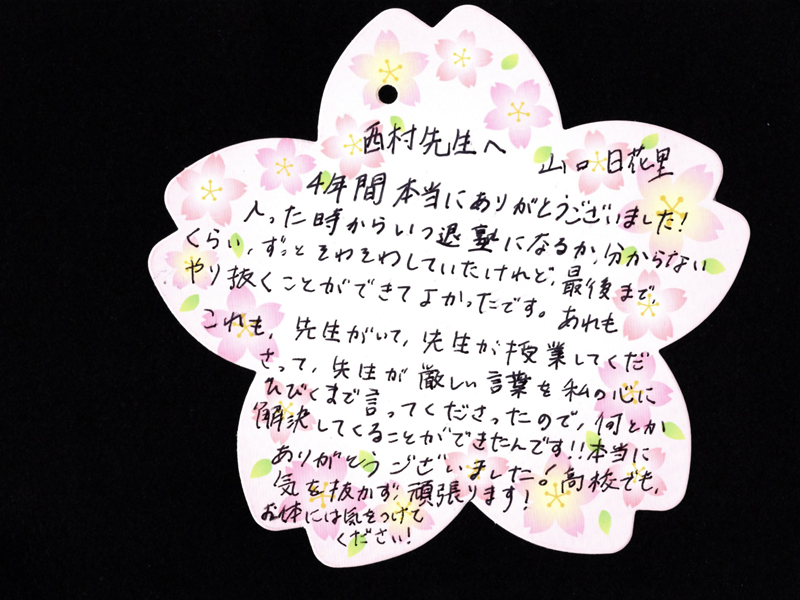 西村先生へ
山口日花里
4年間本当にありがとうございました!
入った時からいつ退塾になるか、分からない
くらい、ずっとそわそわしていたけれど、最後まで、
やり抜くことができてよかったです。あれも
これも、先生がいて、先生が授業してくだ
さって、先生が厳しい言葉を私の心に
ひびくまで言ってくださったので、何とか
解決してくることができたんです!!本当に
ありがとうございました!高校でも、
気を抜かず、頑張ります!
お体には気をつけて
ください!